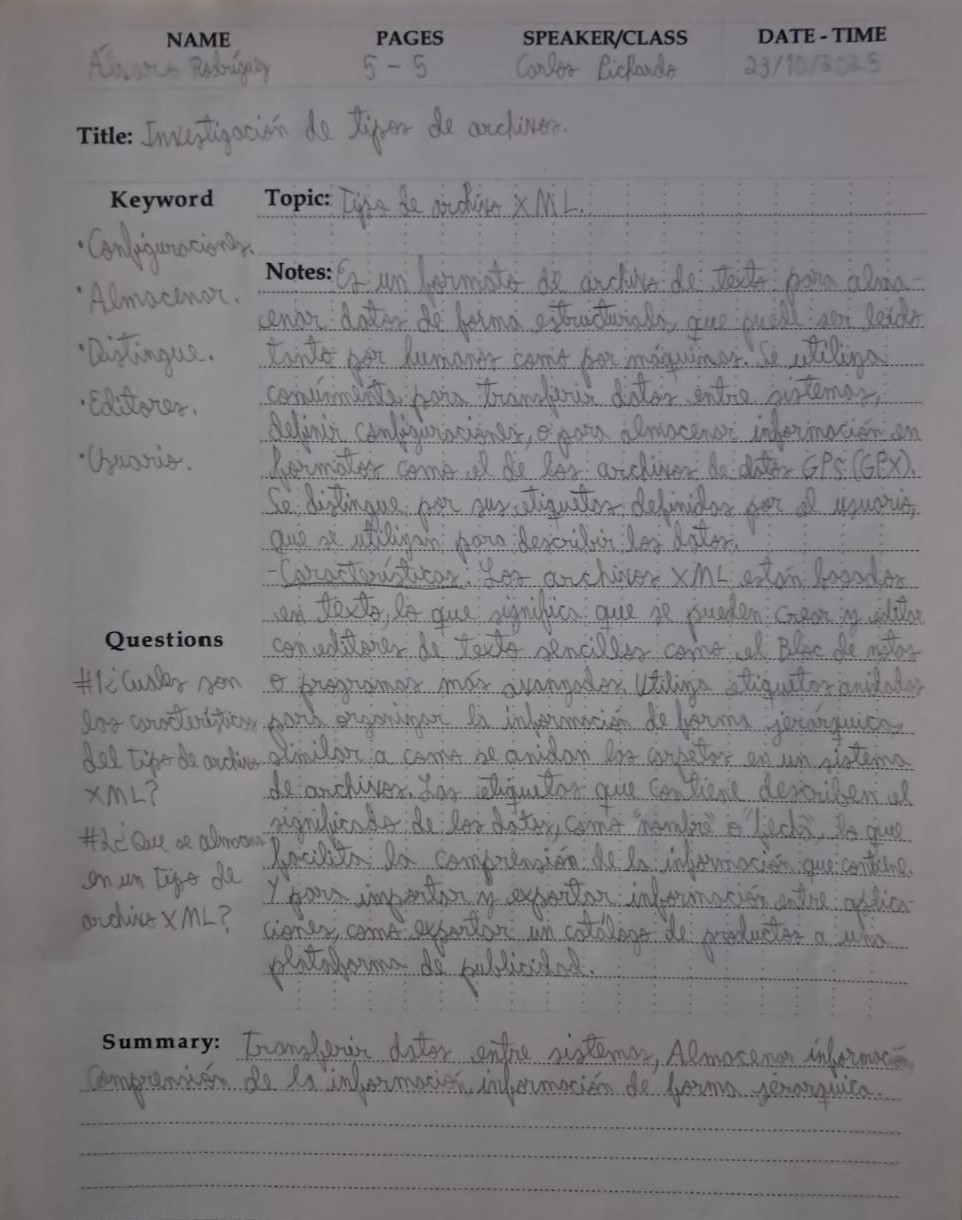 NAME PAGES SPEAKER/CLASS DATE - TIME
Álvaro Rodríguez 5 - 5 Carlos Pichardo 23/10/2025
Title: Investigación de tipos de archivos.
Keyword
• Configuraciones.
• Almacenar.
• Distingue.
• Editores.
• Usuario.
Questions
#1¿Cuales son
las características
del tipo de archivo
XML?
#2¿Que se almacena
en un tipo de
archivo XML?
Topic: Tipo de archivo XML.
Notes: Es un formato de archivo de texto para alma-
cenar datos de forma estructurada, que puede ser leído
tanto por humanos como por máquinas. Se utiliza
comúnmente para transferir datos entre sistemas,
definir configuraciones, o para almacenar información en
formatos como el de los archivos de datos GPS (GPX).
Se distingue por sus etiquetas definidas por el usuario,
que se utilizan para describir los datos.
-Características: Los archivos XML están basados
en texto, lo que significa que se pueden crear y editar
con editores de texto sencillos como el Bloc de notas
o programas más avanzados. Utiliza etiquetas anidadas
para organizar la información de forma jerárquica,
similar a como se anidan las carpetas en un sistema
de archivos. Las etiquetas que contiene describen el
significado de los datos, como "nombre" o "fecha", lo que
facilita la comprensión de la información que contiene.
Y para importar y exportar información entre aplica-
ciones, como exportar un catálogo de productos a una
plataforma de publicidad.
Summary: Transferir datos entre sistemas, Almacenar información,
Comprensión de la información, información de forma jerarquica.